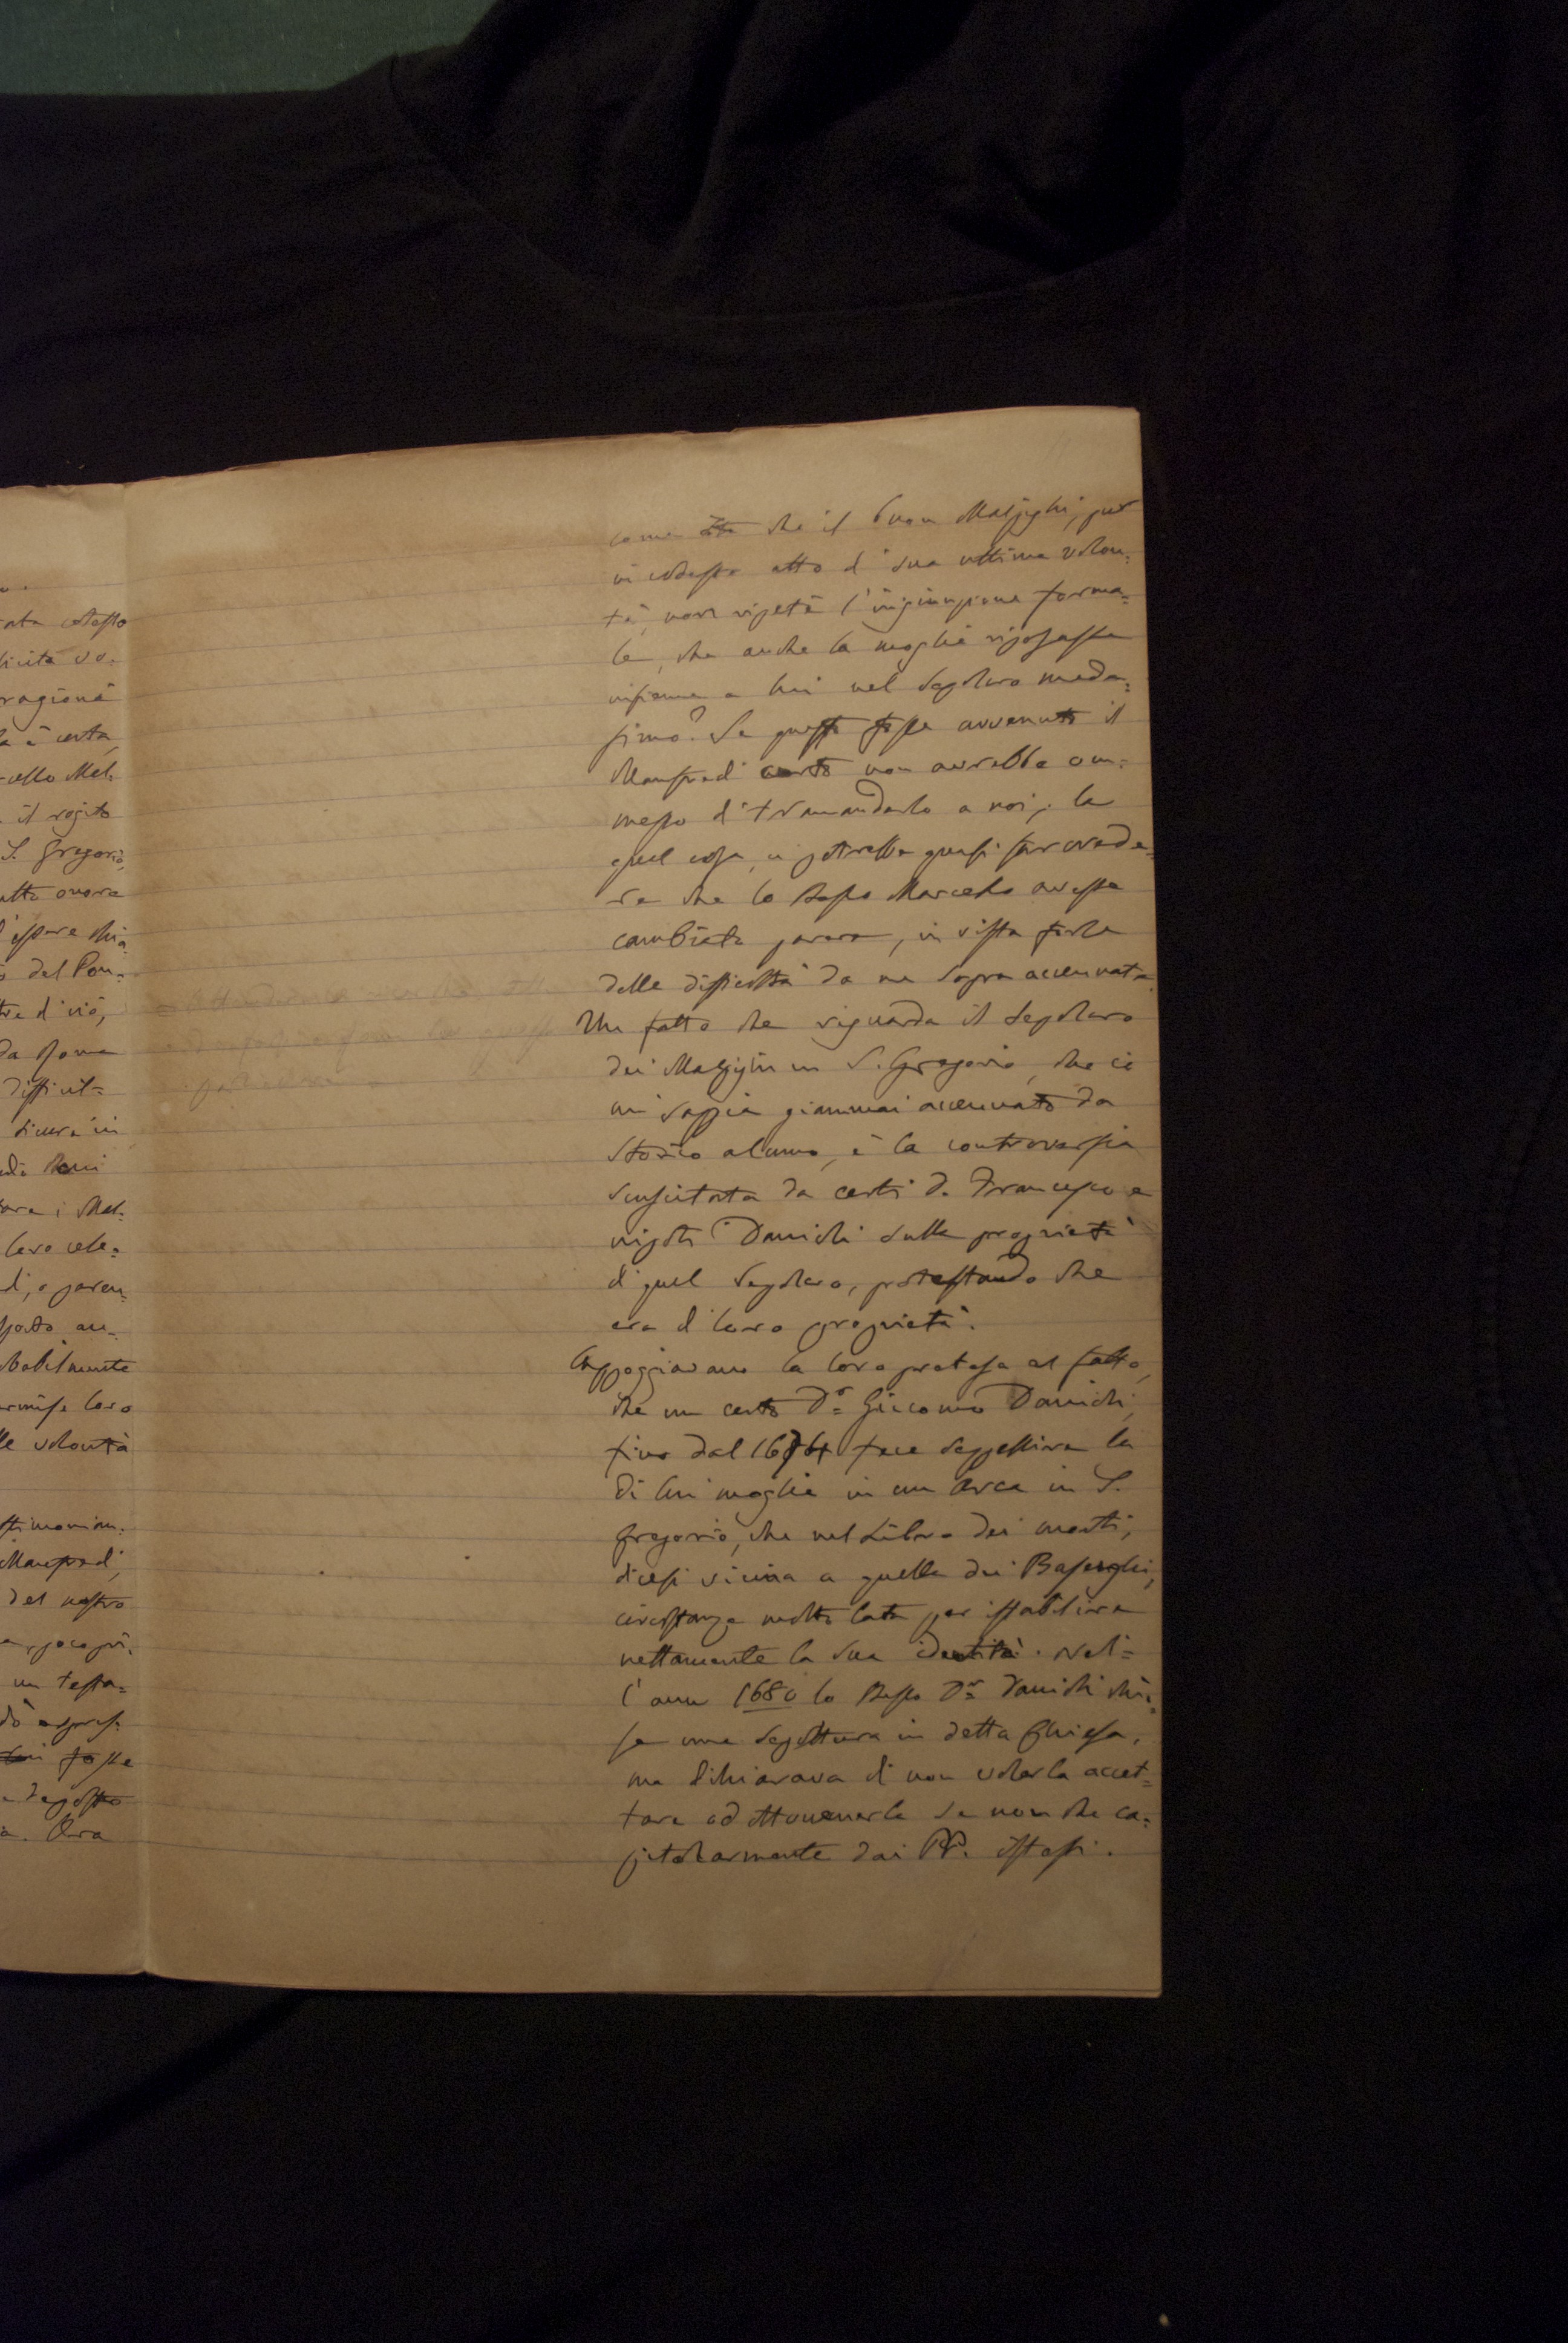 ata codesto
licità vo-
ragione
a è certa,
cello Mal-
il rogito
S. Gregorio,
utto onore
essere chia
del Pon-
tre d' ciò,
da Roma
difficul=
sicura in
are i Mal-
loro cele=
d', o paren-
babilmente
rmise loro
le volontà
stimonian-
Manfredi,
del nostro
un testa=
espres-
fosse
a. Ora
come che il buon Malpighi, pur
in codesto atto d' sua ultima volon-
tà, non ripetè l'ingiunzione forma=
le, che anche la moglie riposasse
insieme a lui nel Sepolcro mede-
simo? Se questo fosse avvenuto il
Manfredi certo non avrebbe om=
messo d' tramandarlo a noi; la
qual cosa, ci potrebbe quasi far crede=
re che lo stesso Marcello avesse
cambiato parere, in vista forse
delle difficoltà da me sopra accennate.
Un fatto che riguarda il Sepolcro
dei Malpighi in S. Gregorio, che io
mi sappia giammai accennato da
storico alcuno, è la controversia
suscitata da certi D. Francesco e
nipoti Danioli sulla proprietà
d' quel Sepolcro, protestando che
era d' loro proprietà.
Appoggiavano la loro pretesa al fatto,
che un certo D.r Giacomo Danioli,
fino dal 1674 fece seppellire la
di lui moglie in un Arca in S.
Gregorio, che nel Libro dei morti,
dicesi vicina a quella dei
circostanza molto lata per istabilire
nettamente la sua identità. Nel=
l'anno 1680 lo stesso D.r Danioli chie=
se una Sepoltura in detta Chiesa,
ma dichiarava di non volerla accet=
tare od ottenerla se non che ca=
pitolarmente dai PP. istessi.